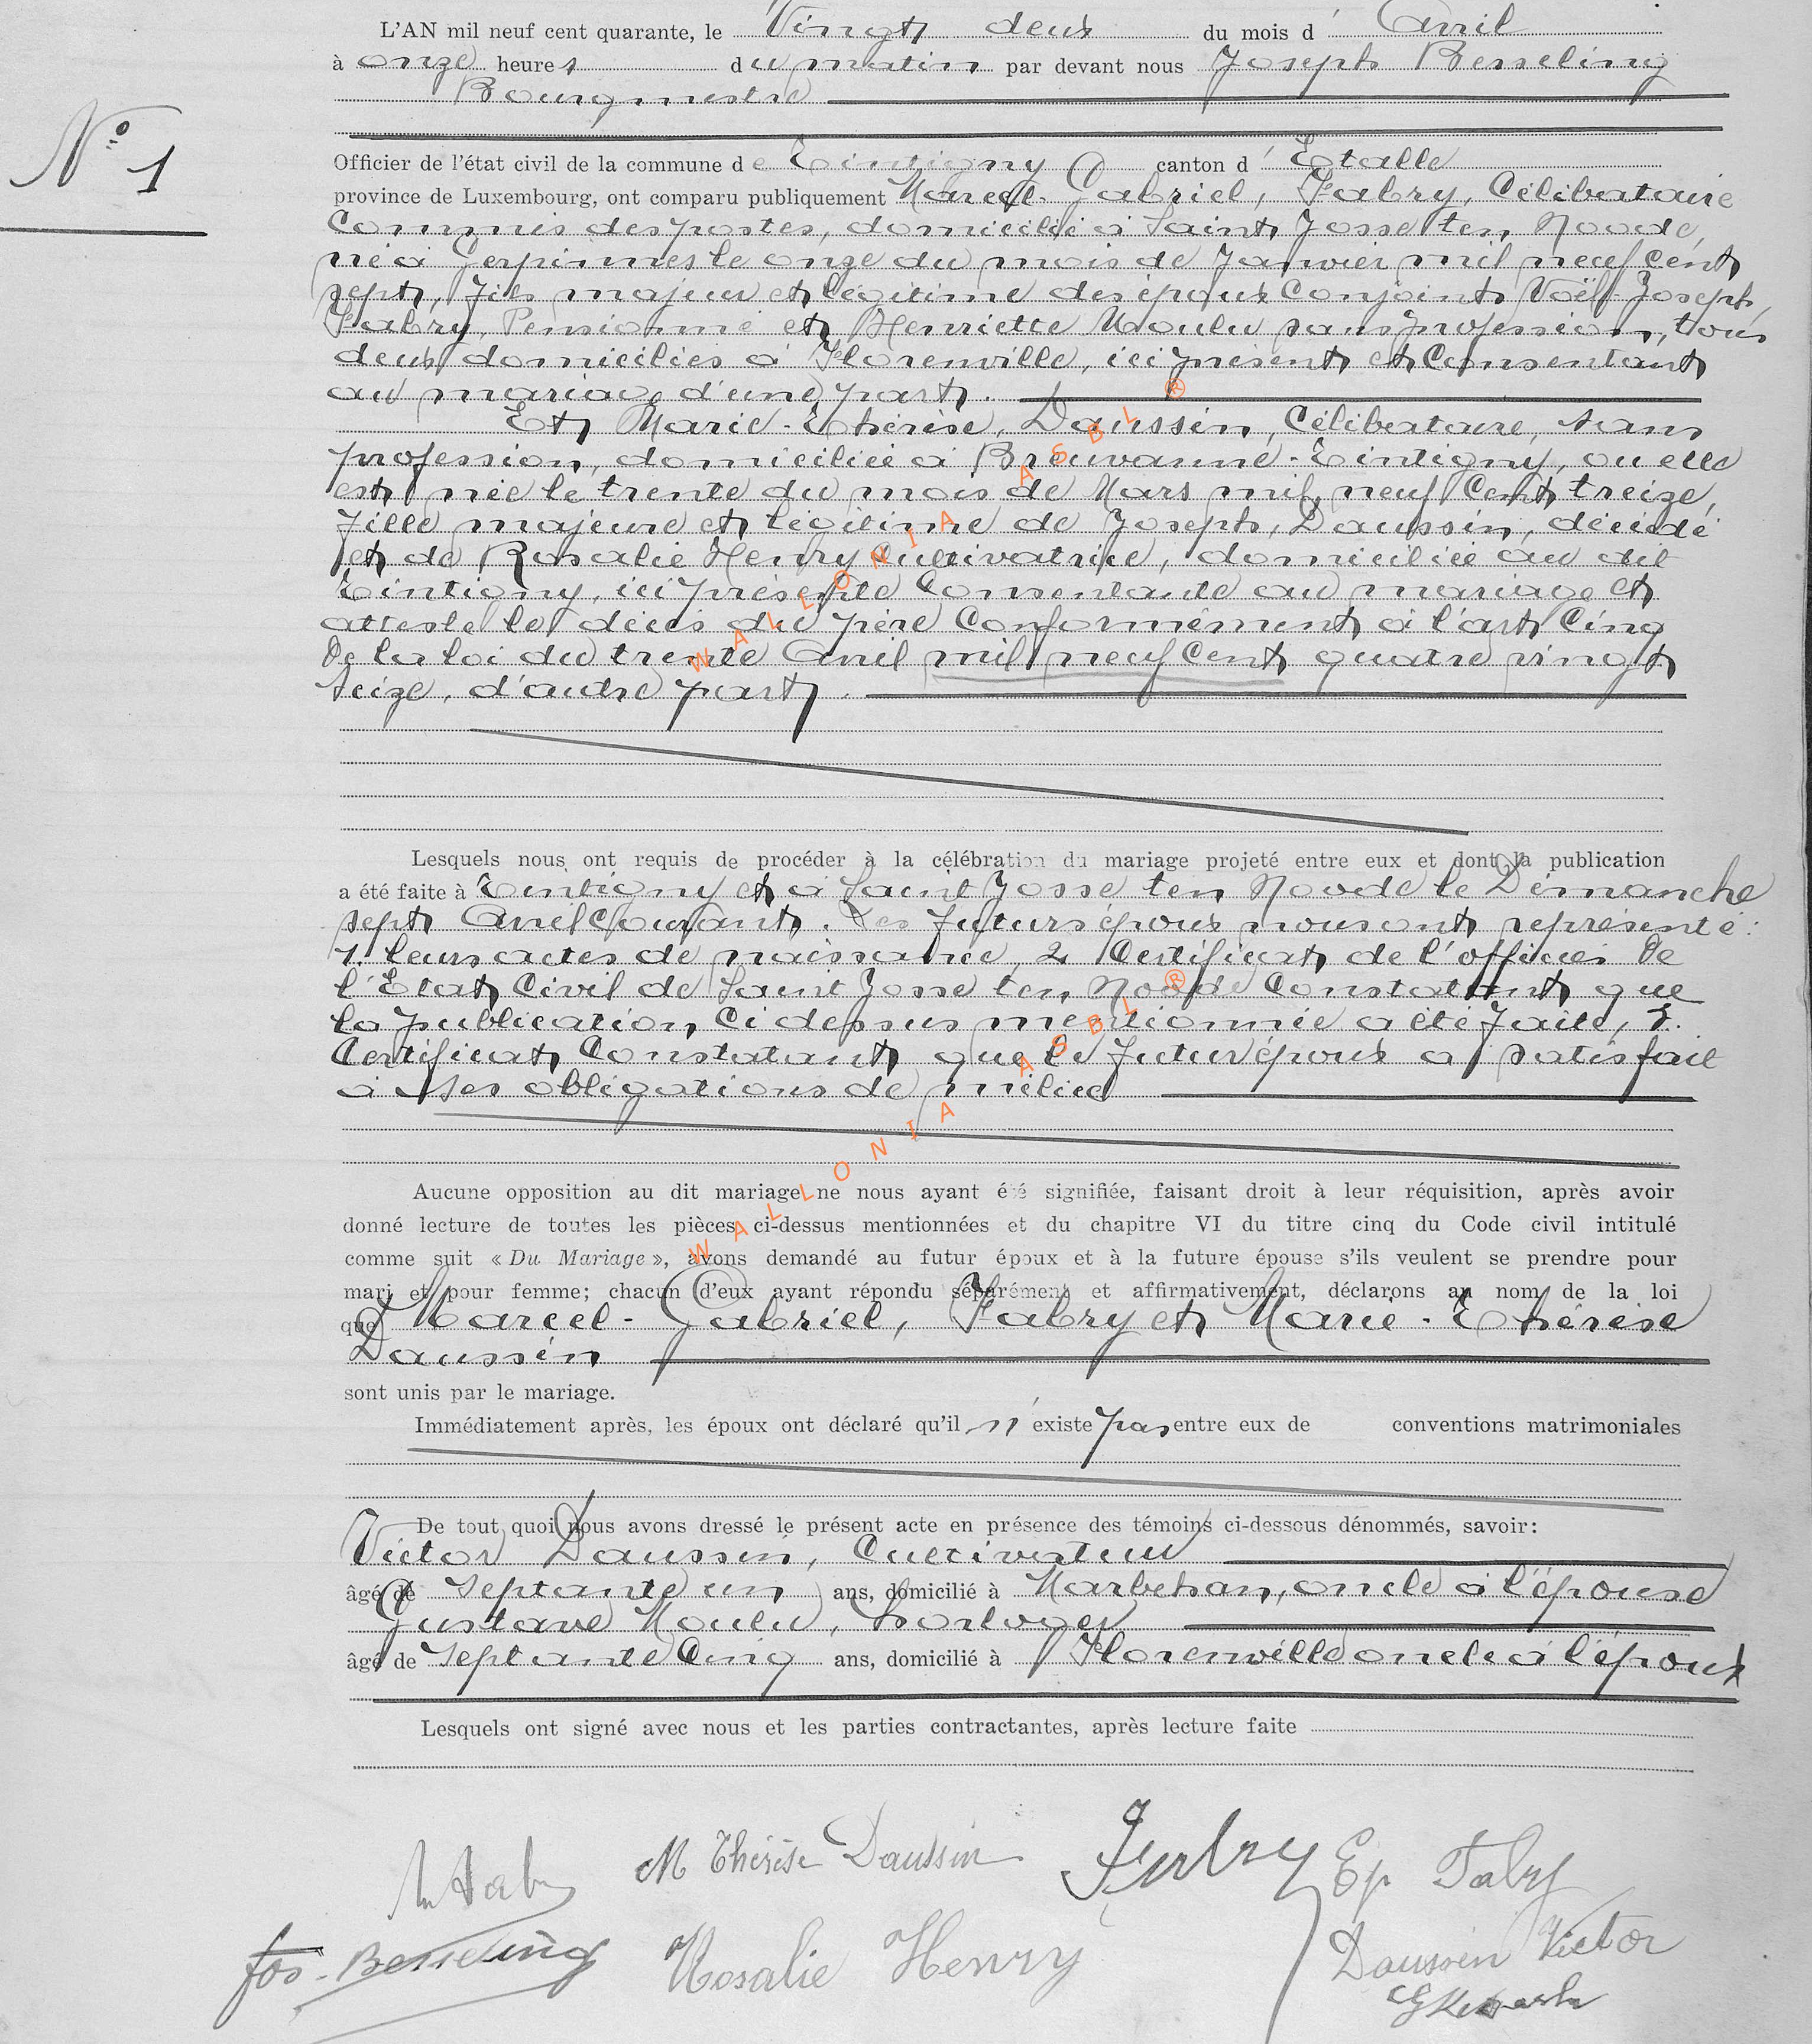 L'AN mil neuf cent quarante, le Vingt deux du mois d' Avril
à onze heures du matin par devant nous Joseph Besseling
Bourgmestre
N° 1
Officier de l'état civil de la commune de Tintigny canton d' Etalle
province de Luxembourg, ont comparu publiquement Marcel-Gabriel, Fabry, Célibataire
Commis des postes, domicilié à Saint Josse ten Noode,
né à Gerpinnes le onze du mois de Janvier mil neuf cent
sept, fils majeur et légitime des époux Conjoints Noël-Joseph,
Fabry, Pensionné et Henriette Moulu sans profession, tous
deux domiciliés à Florenville, ici présent et Consentant
au mariage d'une part.
Et Marie-Thérèse, Daussin, Célibataire, sans
profession, domiciliée à Breuvanne-Tintigny, ou elle
est née le trente du mois de Mars mil neuf Cent treize,
fille majeure et légitime de Joseph, Daussin, décédé
et de Rosalie Henry Cultivatrice, domiciliée au dit
Tintigny, ici présente Consentante au mariage et
atteste le décès du père Conformément à l'art Cinq
De la loi du trente Avril mil neuf Cent quatre vingt
seize, d'autre part.
Lesquels nous ont requis de procéder à la célébration du mariage projeté entre eux et dont la publication
a été faite à Tintigny et à Saint Josse ten Noode le Dimanche
sept Avril Courant. Les futurs époux nous ont représenté:
1. leurs actes de naissance, 2 Certificat de l'officier De
l'Etat Civil de Saint Josse ten Noode Constatant que
la publication Ci dessus mentionnée a été faite, 3.
Certificat Constatant que le futur époux a satisfait
à ses obligations de milice
Aucune opposition au dit mariage ne nous ayant été signifiée, faisant droit à leur réquisition, après avoir
donné lecture de toutes les pièces ci-dessus mentionnées et du chapitre VI du titre cinq du Code civil intitulé
comme suit « Du Mariage », avons demandé au futur époux et à la future épouse s'ils veulent se prendre pour
mari et pour femme; chacun d'eux ayant répondu séparément et affirmativement, déclarons au nom de la loi
que Marcel-Gabriel, Fabry et Marie-Thérèse
Daussin
sont unis par le mariage.
Immédiatement après, les époux ont déclaré qu'il n'existe pas entre eux de conventions matrimoniales
De tout quoi nous avons dressé le présent acte en présence des témoins ci-dessous dénommés, savoir:
Victor Daussin, Cultivateur
âgé de septante un ans, domicilié à Marbehan, oncle à l'épouse
Gustave Moulu, horloger
âgé de septante Cinq ans, domicilié à Florenville oncle à l'époux
Lesquels ont signé avec nous et les parties contractantes, après lecture faite
M Thérèse Daussin Fabry Ep Fabry
Jos. Besseling Rosalie Henry Daussin Victor
WALLONIA ASBL ®
WALLONIA ASBL ®